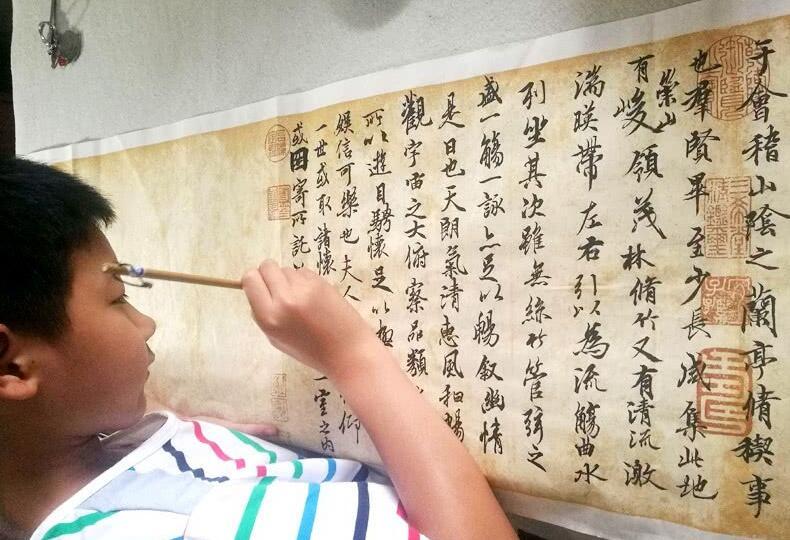 于會稽山陰之蘭亭脩稧事
也羣賢畢至少長咸集此地
有崇山峻領茂林脩竹又有清流激
湍暎帶左右引以為流觴曲水
列坐其次雖無絲竹管弦之
盛一觴一詠亦足以暢叙幽情
是日也天朗氣清惠風和暢
觀宇宙之大俯察品類
所以遊目騁懷足以極
娛信可樂也夫人仰
一世或取諸懷一室之內
或因寄所託